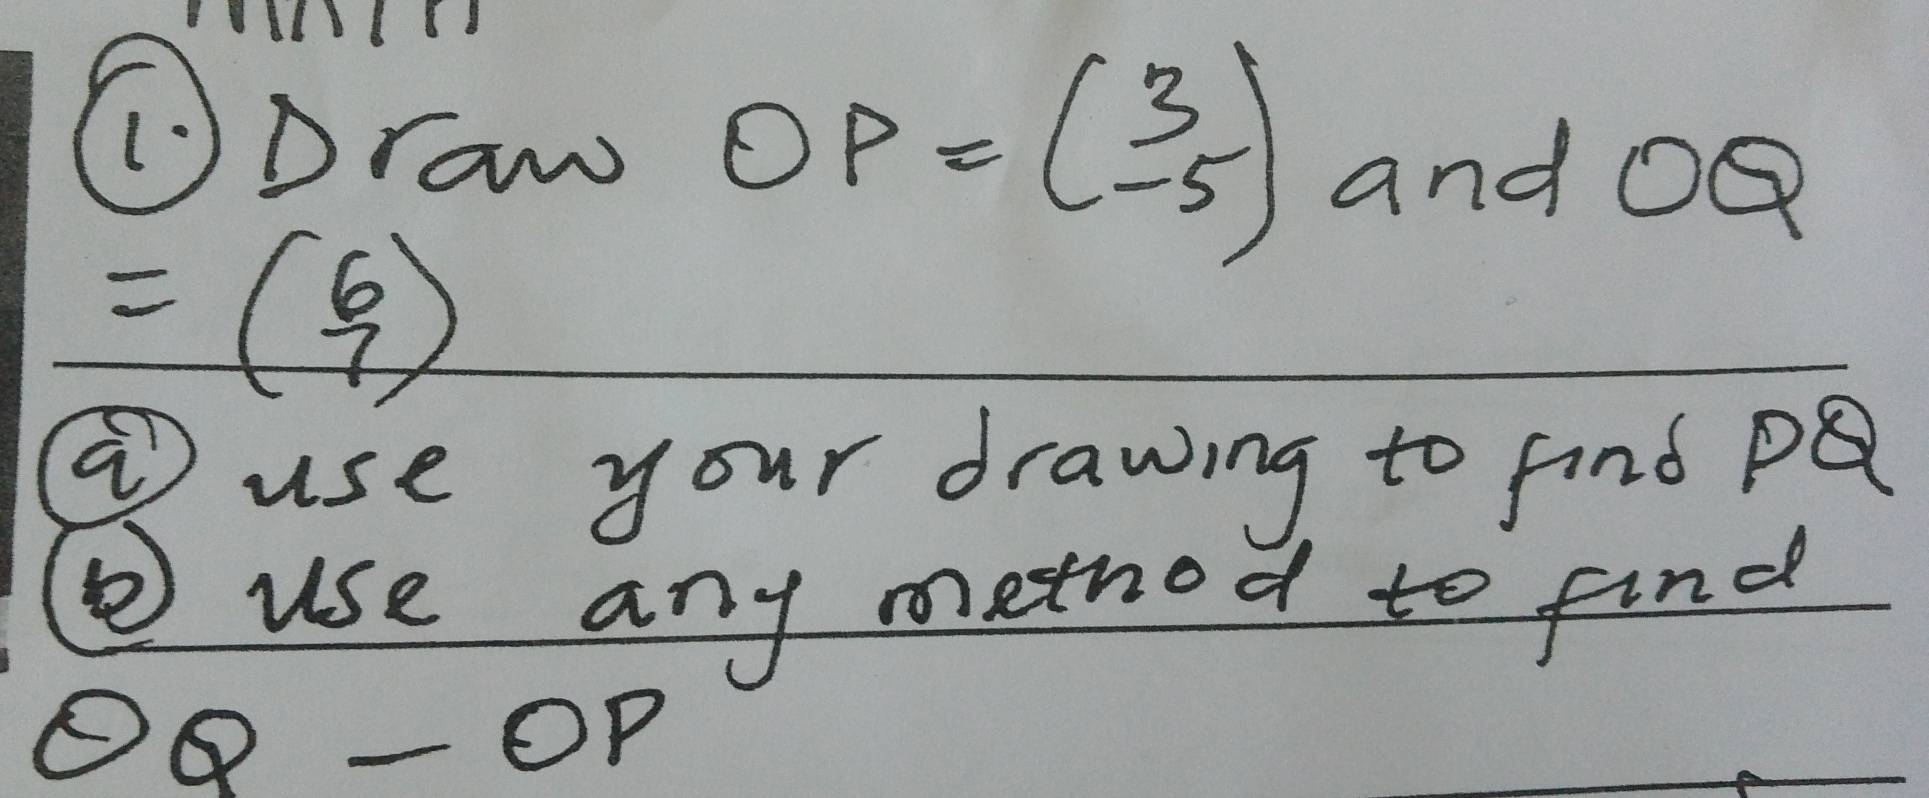 MATH
1. Draw OP = (3 -5) and OQ
= (6 7)
a) use your drawing to find PQ
b) use any method to find
OQ - OP